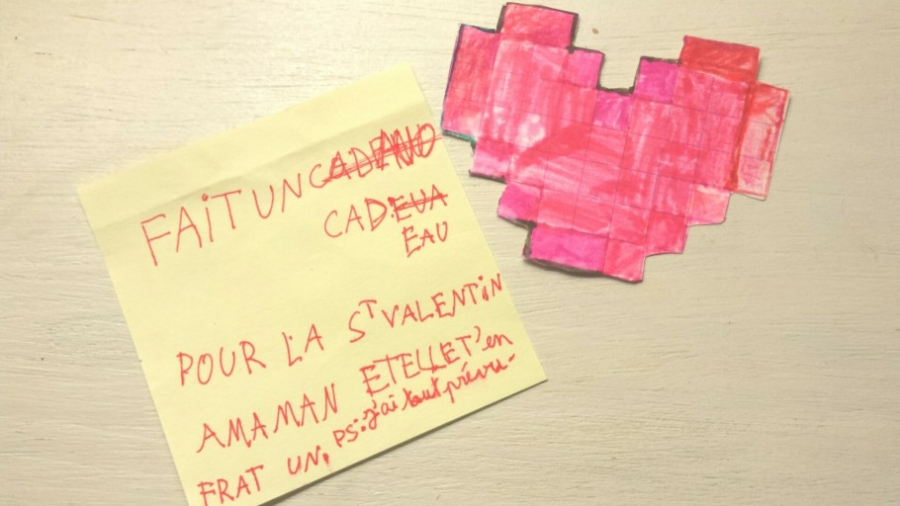 FAiT UN CADEAUO
CADEUA
EAU
POUR LA ST VALENTiN
AMAMAN ETELLET'en
FRAT UN. PS: j'ai tout prévu-